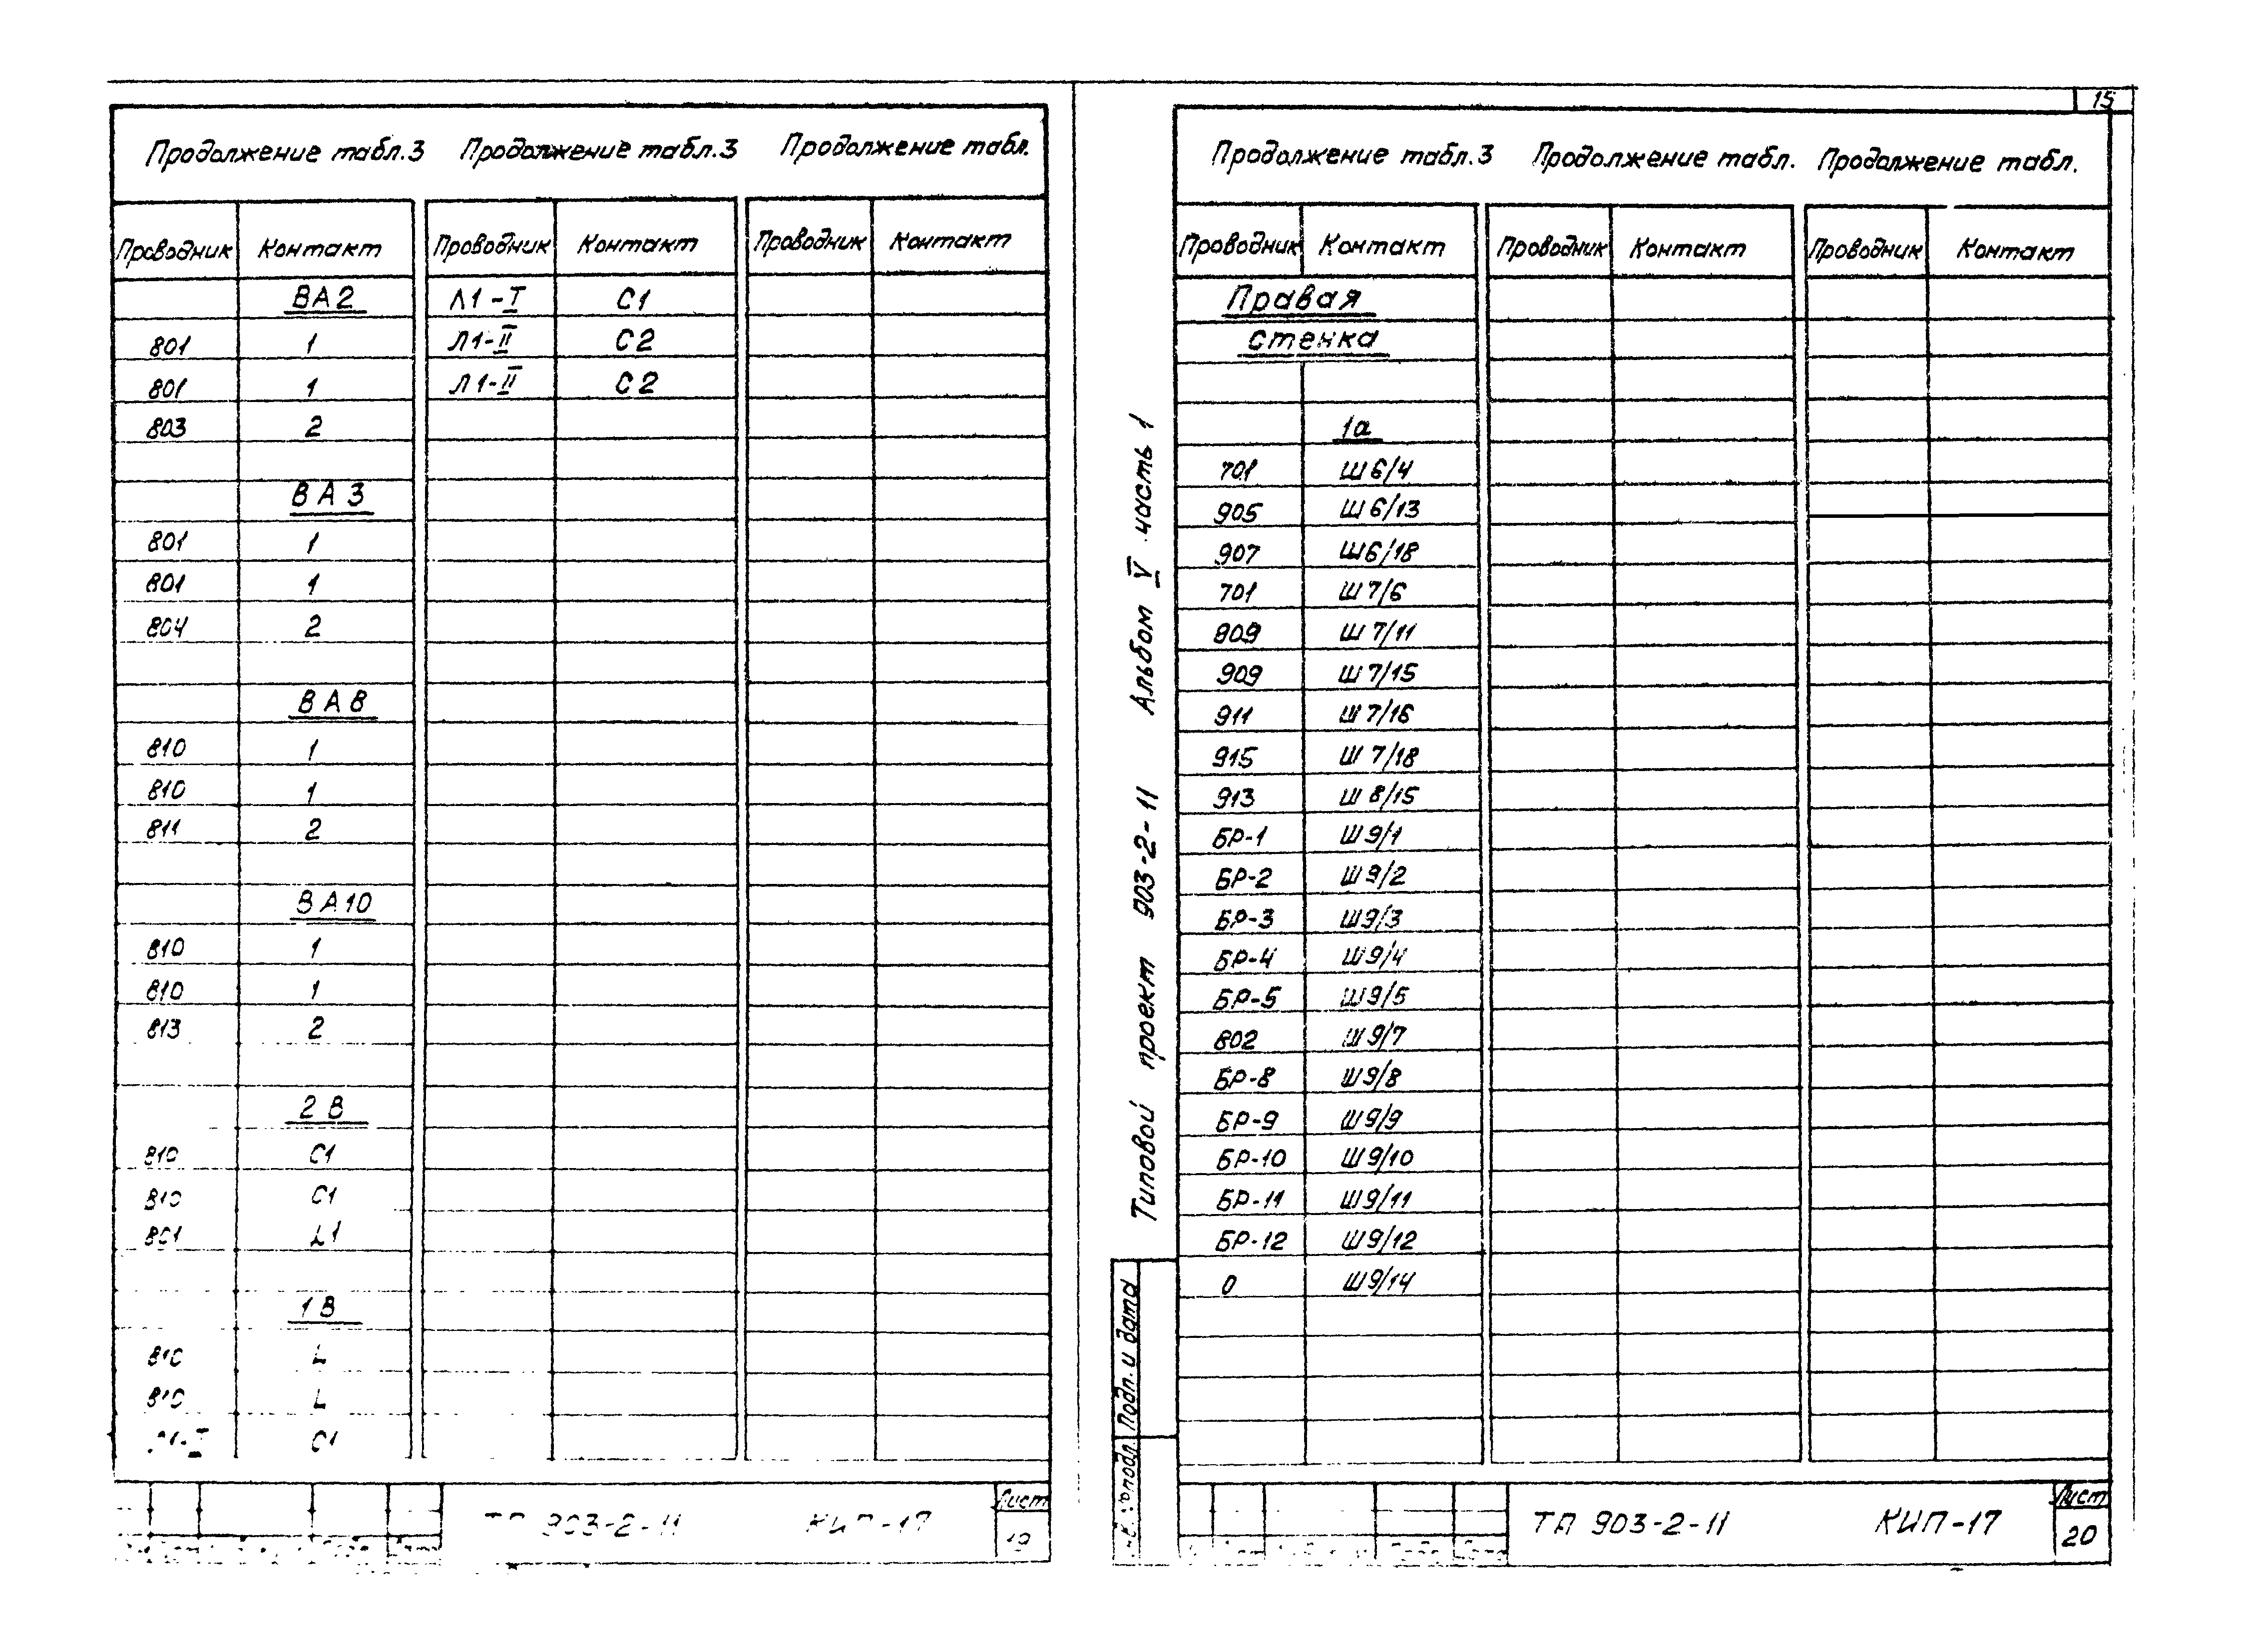 Продолжение табл.3 Продолжение табл.3 Продолжение табл.
Проводник Контакт Проводник Контакт Проводник Контакт
ВА2 Л1-I С1
801 1 Л1-II С2
801 1 Л1-II С2
803 2
ВА3
801 1
801 1
804 2
ВА8
810 1
810 1
811 2
ВА10
810 1
810 1
813 2
2В
810 С1
810 С1
801 L1
1В
810 L
810 L
Л1-I С1
ТП 903-2-11 КИП-17 Лист
19
15
Продолжение табл.3 Продолжение табл. Продолжение табл.
Проводник Контакт Проводник Контакт Проводник Контакт
Правая
стенка
1а
701 Ш6/4
905 Ш6/13
907 Ш6/18
701 Ш7/6
909 Ш7/11
909 Ш7/15
911 Ш7/16
915 Ш7/18
913 Ш8/15
БР-1 Ш9/1
БР-2 Ш9/2
БР-3 Ш9/3
БР-4 Ш9/4
БР-5 Ш9/5
802 Ш9/7
БР-8 Ш9/8
БР-9 Ш9/9
БР-10 Ш9/10
БР-11 Ш9/11
БР-12 Ш9/12
0 Ш9/14
Типовой проект 903-2-11 Альбом V часть 1
Подп. и дата
подл.
ТП 903-2-11 КИП-17 Лист
20